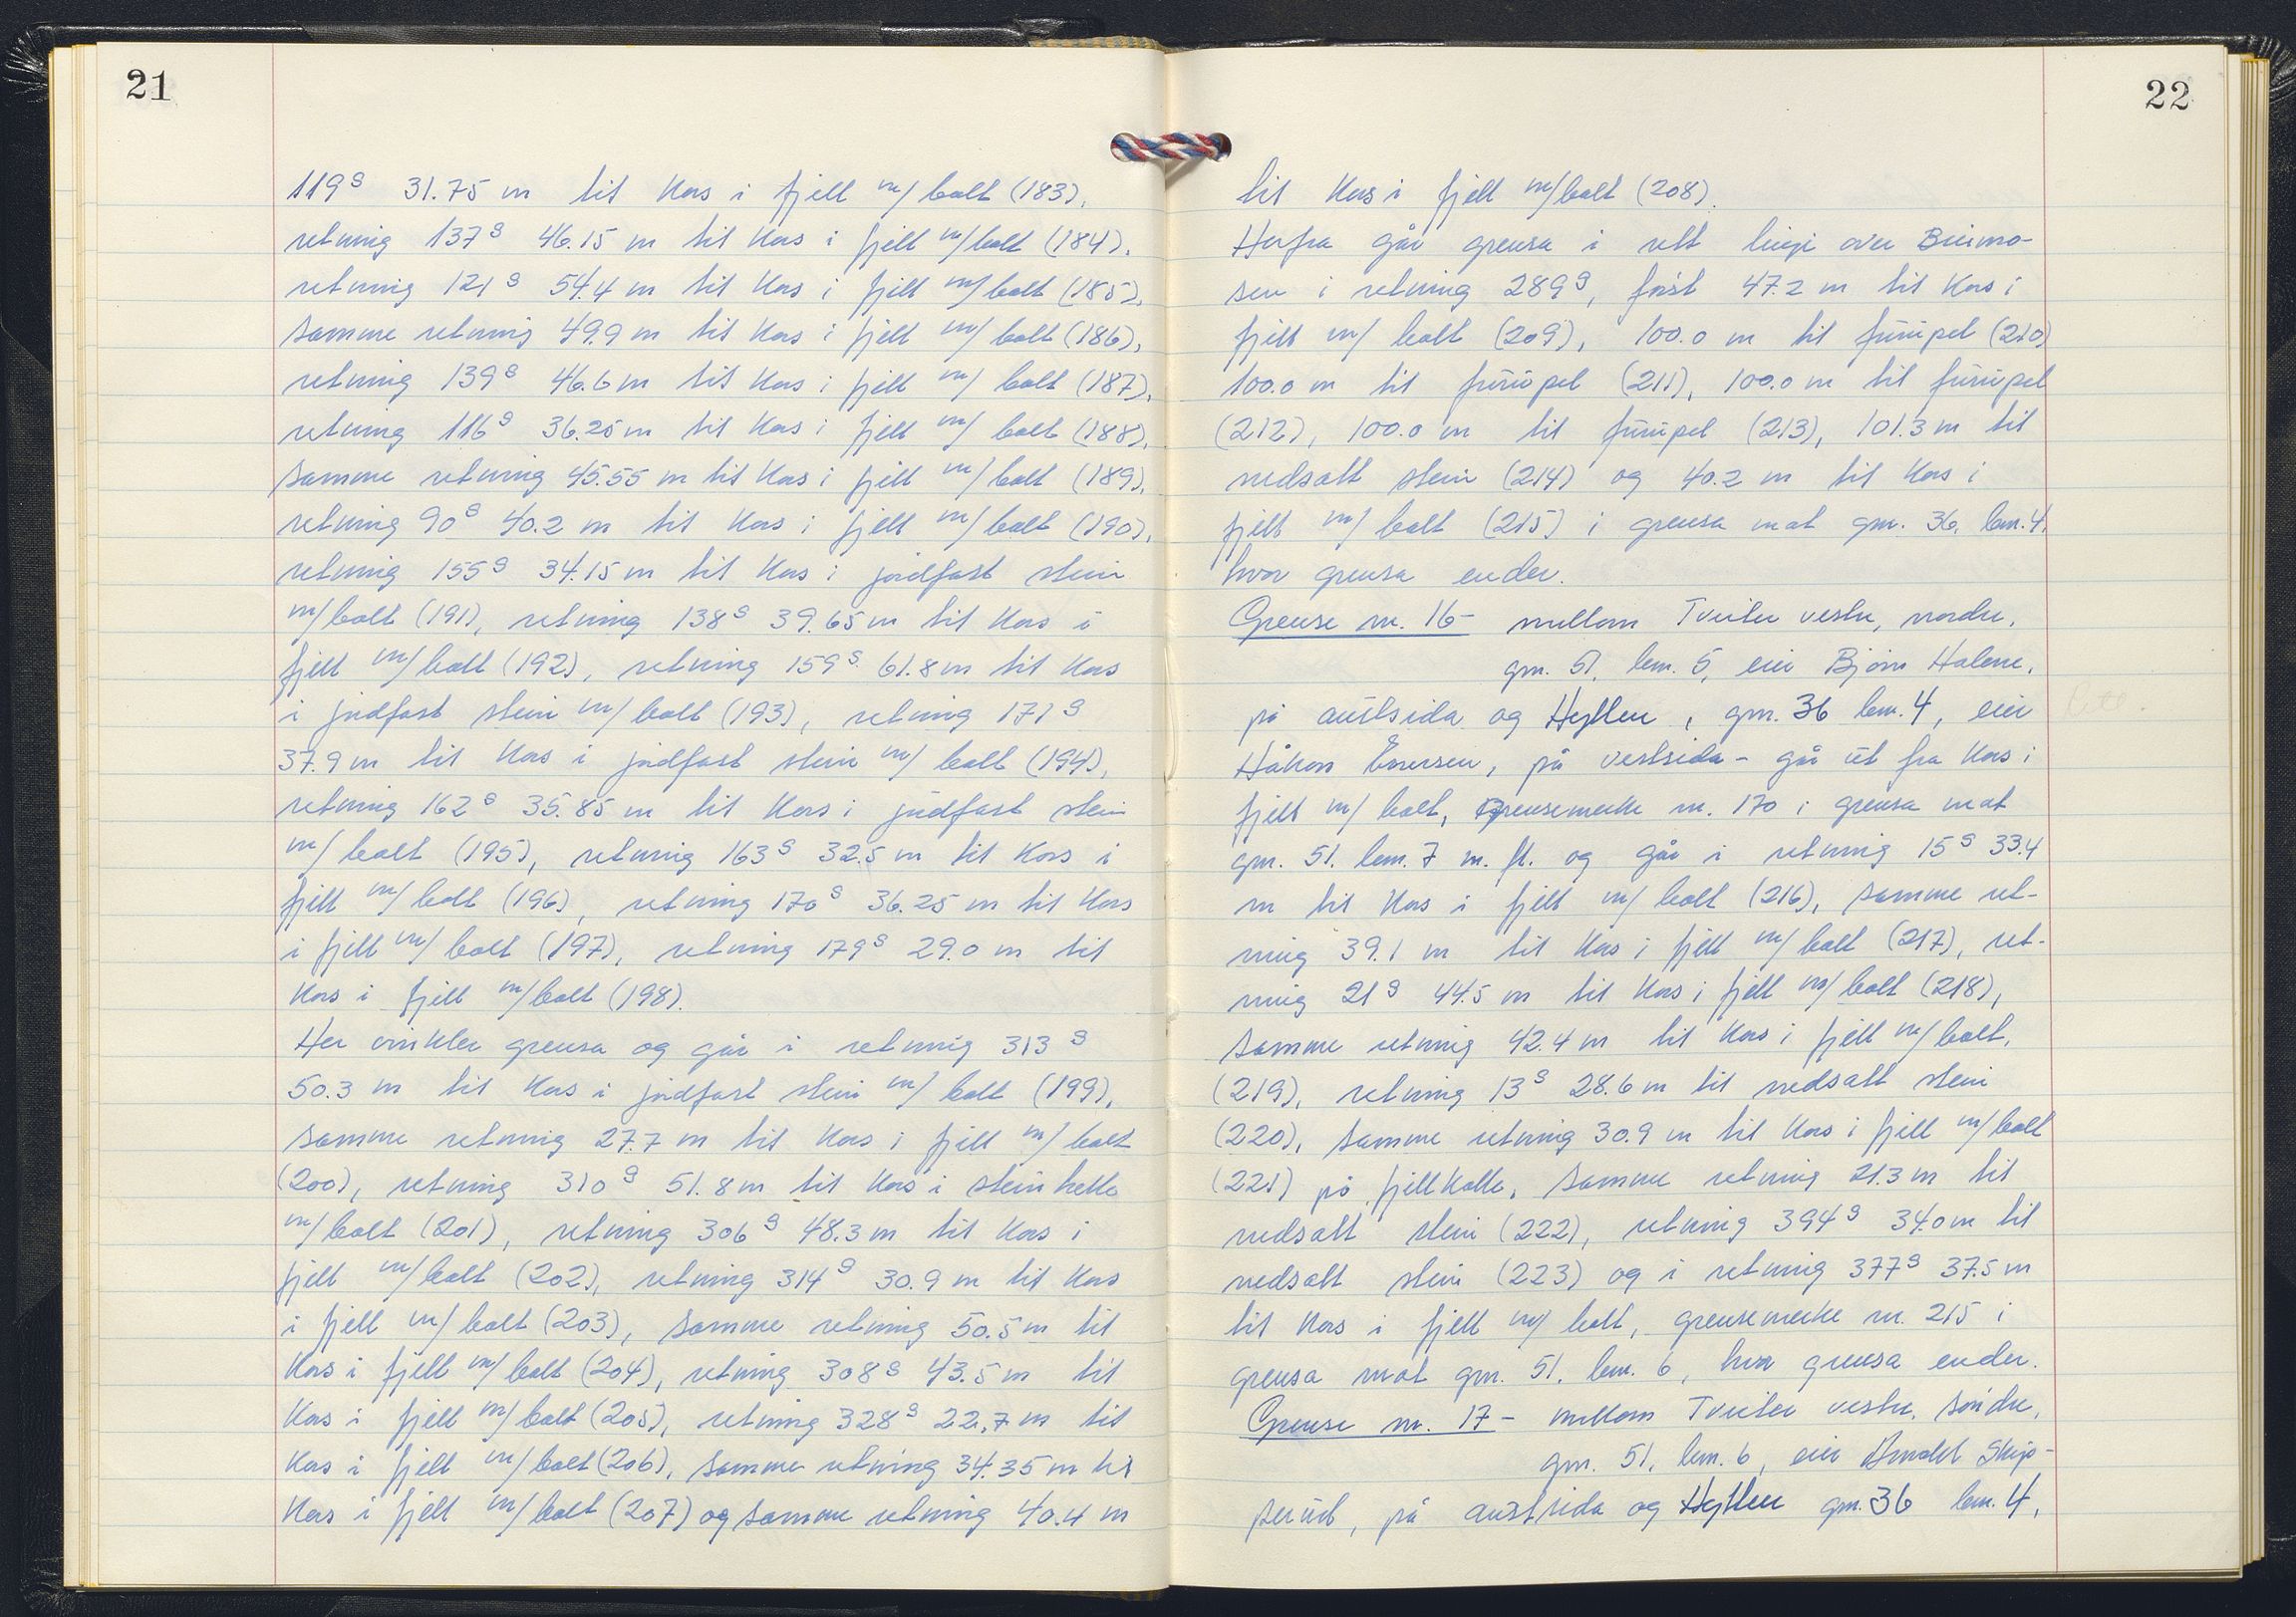 21
119g 31.75 m til kors i fjell m/bolt (183),
retning 137g 46.15 m til kors i fjell m/bolt (184),
retning 121g 54.4 m til kors i fjell m/bolt (185),
samme retning 49.9 m til kors i fjell m/bolt (186),
retning 139g 46.6 m til kors i fjell m/ bolt (187),
retning 116g 36.25 m til kors i fjell m/ bolt (188),
samme retning 45.55 m til kors i fjell m/bolt (189),
retning 90g 40.2 m til kors i fjell m/bolt (190),
retning 155g 34.15 m til kors i jordfast stein
m/bolt (191), retning 138g 39.65 m til kors i
fjell m/bolt (192), retning 159g 61.8 m til kors
i jordfast stein m/bolt (193), retning 171g
37.9 m til kors i jordfast stein m/ bolt (194),
retning 162g 35.85 m til kors i jordfast stein
m/ bolt (195), retning 163g 32.5 m til kors i
fjell m/bolt (196), retning 170g 36.25 m til kors
i fjell m/bolt (197), retning 179g 29.0 m til
kors i fjell m/bolt (198).
Her vinkler grensa og går i retning 313g
50.3 m til kors i jordfast stein m/ bolt (199),
samme retning 27.7 m til kors i fjell m/ bolt
(200), retning 310g 51.8 m til kors i steinhelle
m/bolt (201), retning 306g 48.3 m til kors i
fjell m/bolt (202), retning 314g 30.9 m til kors
i fjell m/bolt (203), samme retning 50.5 m til
kors i fjell m/bolt (204), retning 308g 43.5 m til
kors i fjell m/bolt (205), retning 328g 22.7 m til
kors i fjell m/bolt (206), samme retning 34.35 m til
kors i fjell m/bolt (207) og samme retning 40.4 m
22
til kors i fjell m/bolt (208).
Herfra går grensa i rett linje over
i retning 289g, først 47.2 m til kors i
fjell m/ bolt (209), 100.0 m til furupel (210)
100.0 m til furupel (211), 100.0 m til furupel
(212), 100.0 m til furupel (213), 101.3 m til
nedsatt stein (214) og 40.2 m til kors i
fjell m/ bolt (215) i grensa mot gnr. 36. bnr. 4.
hvor grensa ender.
Grense nr. 16 - mellom Tveiter vestre, nordre,
gnr. 51, bnr. 5, eier Bjørn Halene,
på austsida og Hyllen, gnr. 36 bnr. 4, eier
Håkon , på vestsida - går ut fra kors i
fjell m/ bolt, grensemerke nr. 170 i grensa mot
gnr. 51. bnr. 7 m. fl. og går i retning 15g 33.4
m til kors i fjell m/ bolt (216), samme ret-
ning 39.1 m til kors i fjell m/ bolt (217), ret-
ning 21g 44.5 m til kors i fjell m/ bolt (218),
samme retning 42.4 m til kors i fjell m/bolt,
(219), retning 13g 28.6 m til nedsatt stein
(220), samme retning 30.9 m til kors i fjell m/bolt
(221) på fjellkolle, samme retning 21.3 m til
nedsatt stein (222), retning 394g 34.0 m til
nedsatt stein (223) og i retning 377g 37.5 m
til kors i fjell m/ bolt, grensemerke nr. 215 i
grensa mot gnr. 51. bnr. 6, hvor grensa ender.
Grense nr. 17 - mellom Tveiter vestre, søndre,
gnr. 51. bnr. 6, eier
på austsida og Hyllen gnr. 36 bnr. 4,